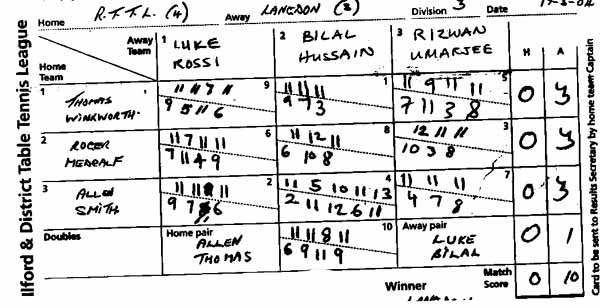 Ilford & District Table Tennis League
Home R.T.T.L. (4) Away LANGDON (3) Division 3 Date
Away Team
Home Team
1 LUKE ROSSI
2 BILAL HUSSAIN
3 RIZWAN UMARJEE
H A
1 THOMAS WINKWORTH
11 11 7 11 9
9 5 11 6
11 11 11 1
9 7 3
11 9 11 11 5
7 11 3 8
0 3
2 ROGER METCALF
11 7 11 11 6
7 11 4 9
11 12 11 8
6 10 8
12 11 11 3
10 3 8
0 3
3 ALLEN SMITH
11 11 11 2
9 7 6
11 5 10 11 13 4
2 11 12 6 11
11 11 11 7
4 7 8
0 3
Doubles
Home pair
ALLEN THOMAS
11 11 8 11 10
6 9 11 9
Away pair
LUKE BILAL
0 1
Winner
Match Score 0 10
Card to be sent to Results Secretary by home team Captain